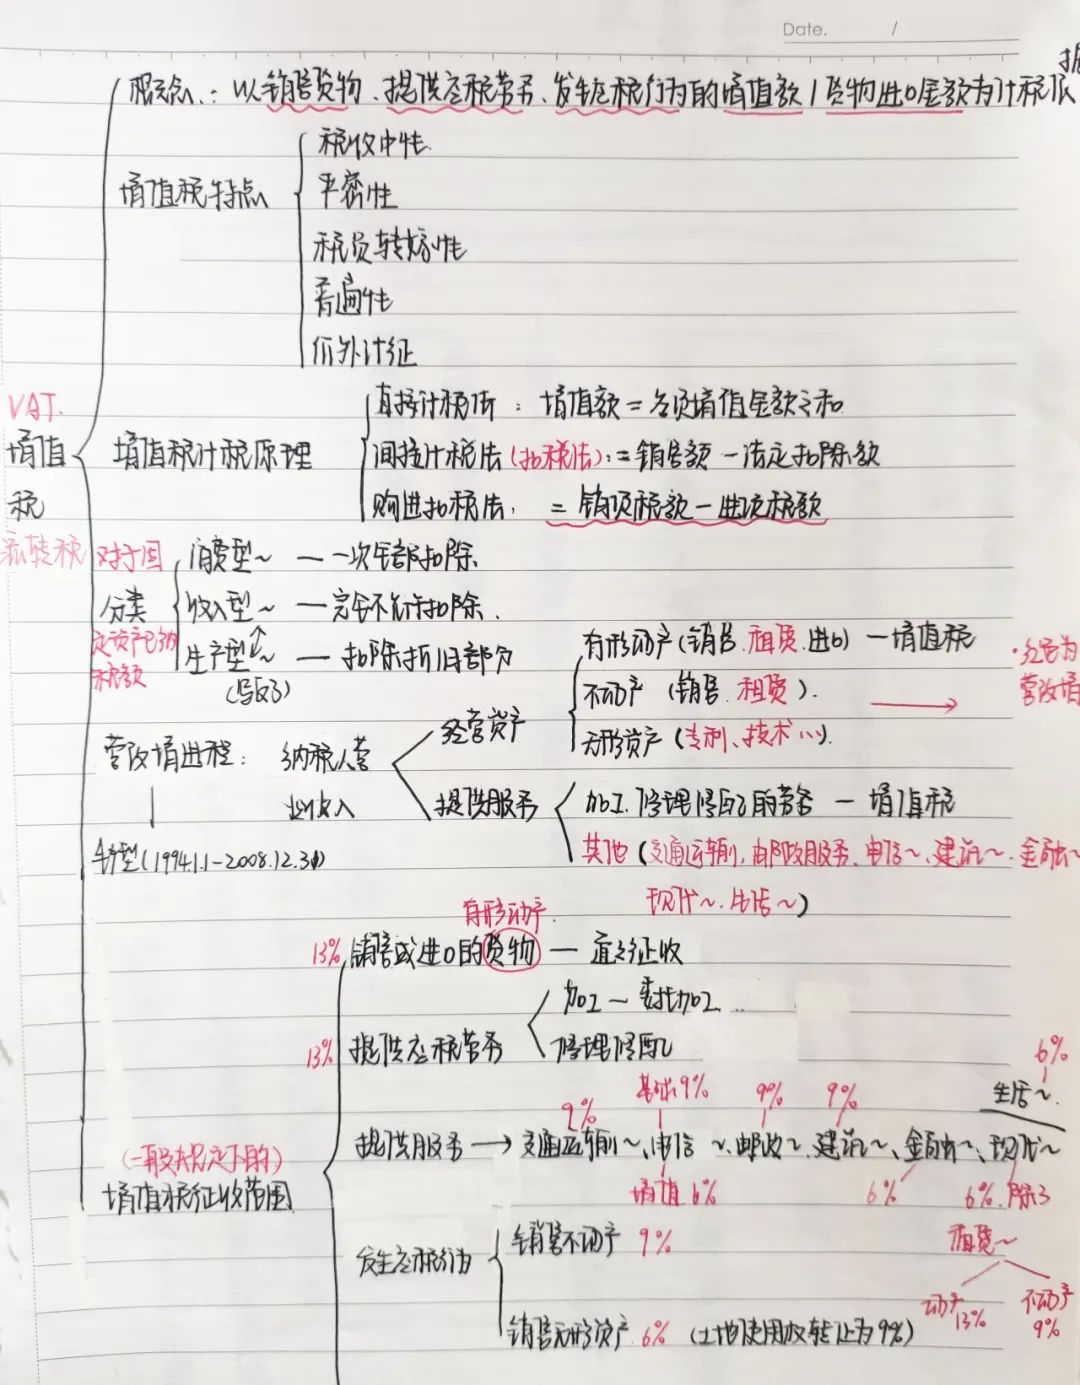 Date. /
概念：以销售货物、提供应税劳务、发生应税行为的增值额/货物进口金额为计税依
税收中性
增值税特点
平衡性
税负转嫁性
普遍性
价外计征
VAT.
增值
税
流转税
增值税计税原理
直接计税法：增值额＝各项增值金额之和
间接计税法（扣税法）：＝销售额－法定扣除额
购进扣税法：＝销项税额－进项税额
对于固
定资产已纳
税额
分类
消费型～ — 一次全部扣除
收入型～ — 完全不允许扣除.
生产型～ — 扣除折旧部分
(写反了)
有形动产（销售.租赁.进口）— 增值税
不动产（销售.租赁）.
无形资产（专利、技术…）.
·红色为
营改增
营改增进程：纳税人营
业收入
经营资产
提供服务
加工.修理修配的劳务 — 增值税
其他（交通运输，邮政服务、电信～、建筑～.金融～
现代～.生活～）
转型(1994.1.1-2008.12.31)
有形动产.
13% 销售或进口的货物 — 征收
13% 提供应税劳务
加工 — 委托加工..
修理修配
6%
生活～.
9% 基础9% 9% 9%
提供服务 → 交通运输～、电信～、邮政～、建筑～、金融～、现代～
增值6% 6% 6%.除了
租赁～
动产13% 不动产9%
(一般规定下的)
增值税征收范围
发生应税行为
销售不动产 9%
销售无形资产 6% (土地使用权转让为9%)